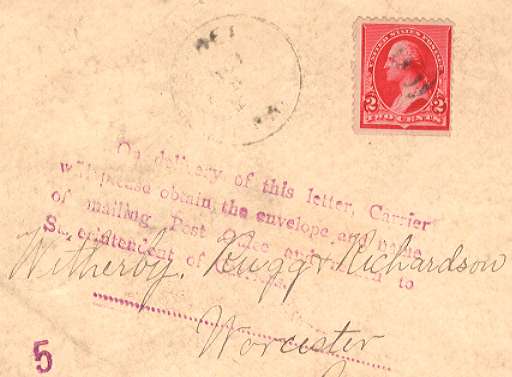 UNITED STATES POSTAGE
2 2
TWO CENTS
On delivery of this letter, Carrier
will please obtain the envelope and name
of mailing Post Office and return to
Superintendent of
Witherby, Rugg & Richardson
Worcester
5